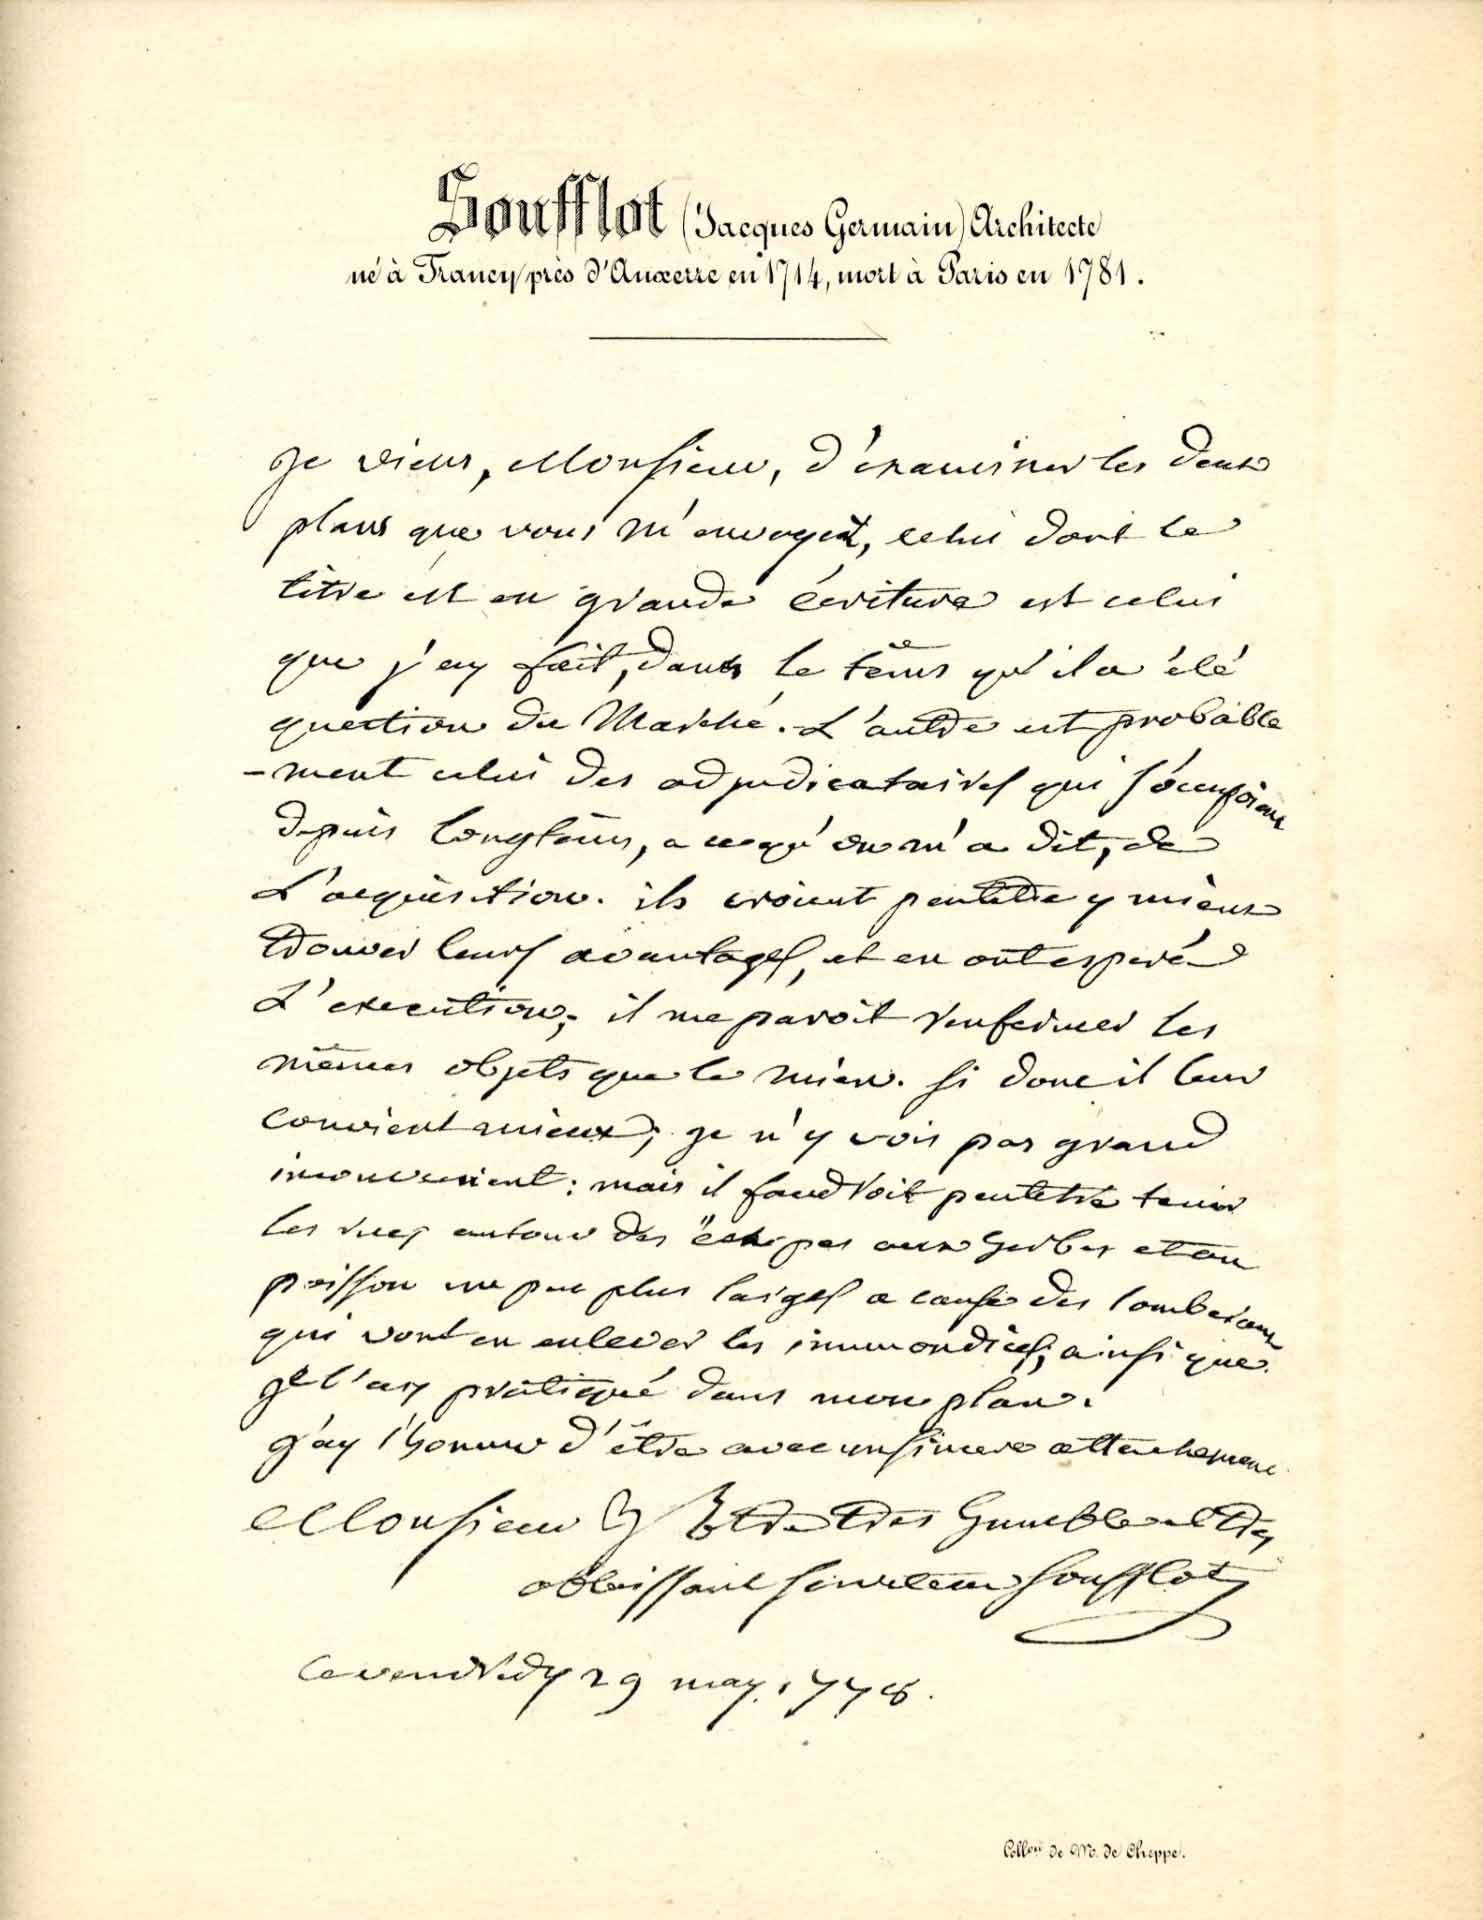 Soufflot (Jacques Germain) Architecte
né à Irancy près d'Auxerre en 1714, mort à Paris en 1781.
je viens, Monsieur, d'examiner les deux
plans que vous m'envoyez, celui dont le
titre est en grande écriture est celui
que j'ay fait, dans le têms qu'il a été
question du Marché. L'autre est probable
-ment celui des adjudicataires qui s'ocupoient
depuis longtêms, a ce qu'on m'a dit, de
L'acquisition. ils croient peutetre y mieux
trouver leurs avantages, et en ont esperé
L'execution; il me paroit renfermer les
mêmes objets que le mien. si donc il leur
convient mieux, je n'y vois pas grand
inconvenient: mais il faudroit peutetre tenir
les rues autour des aux herbes et au
poisson un peu plus larges a cause des tombereaux
qui vont en enlever les immondices, ainsi que
je l'ay pratiqué dans mon plan.
j'ay l'honneur d'être avec un sincere attachement
Monsieur Votre tres humble et tres
obeissant serviteur Soufflot
ce vendredy 29 may 1778.
Collon de Mr. de Cheppe.